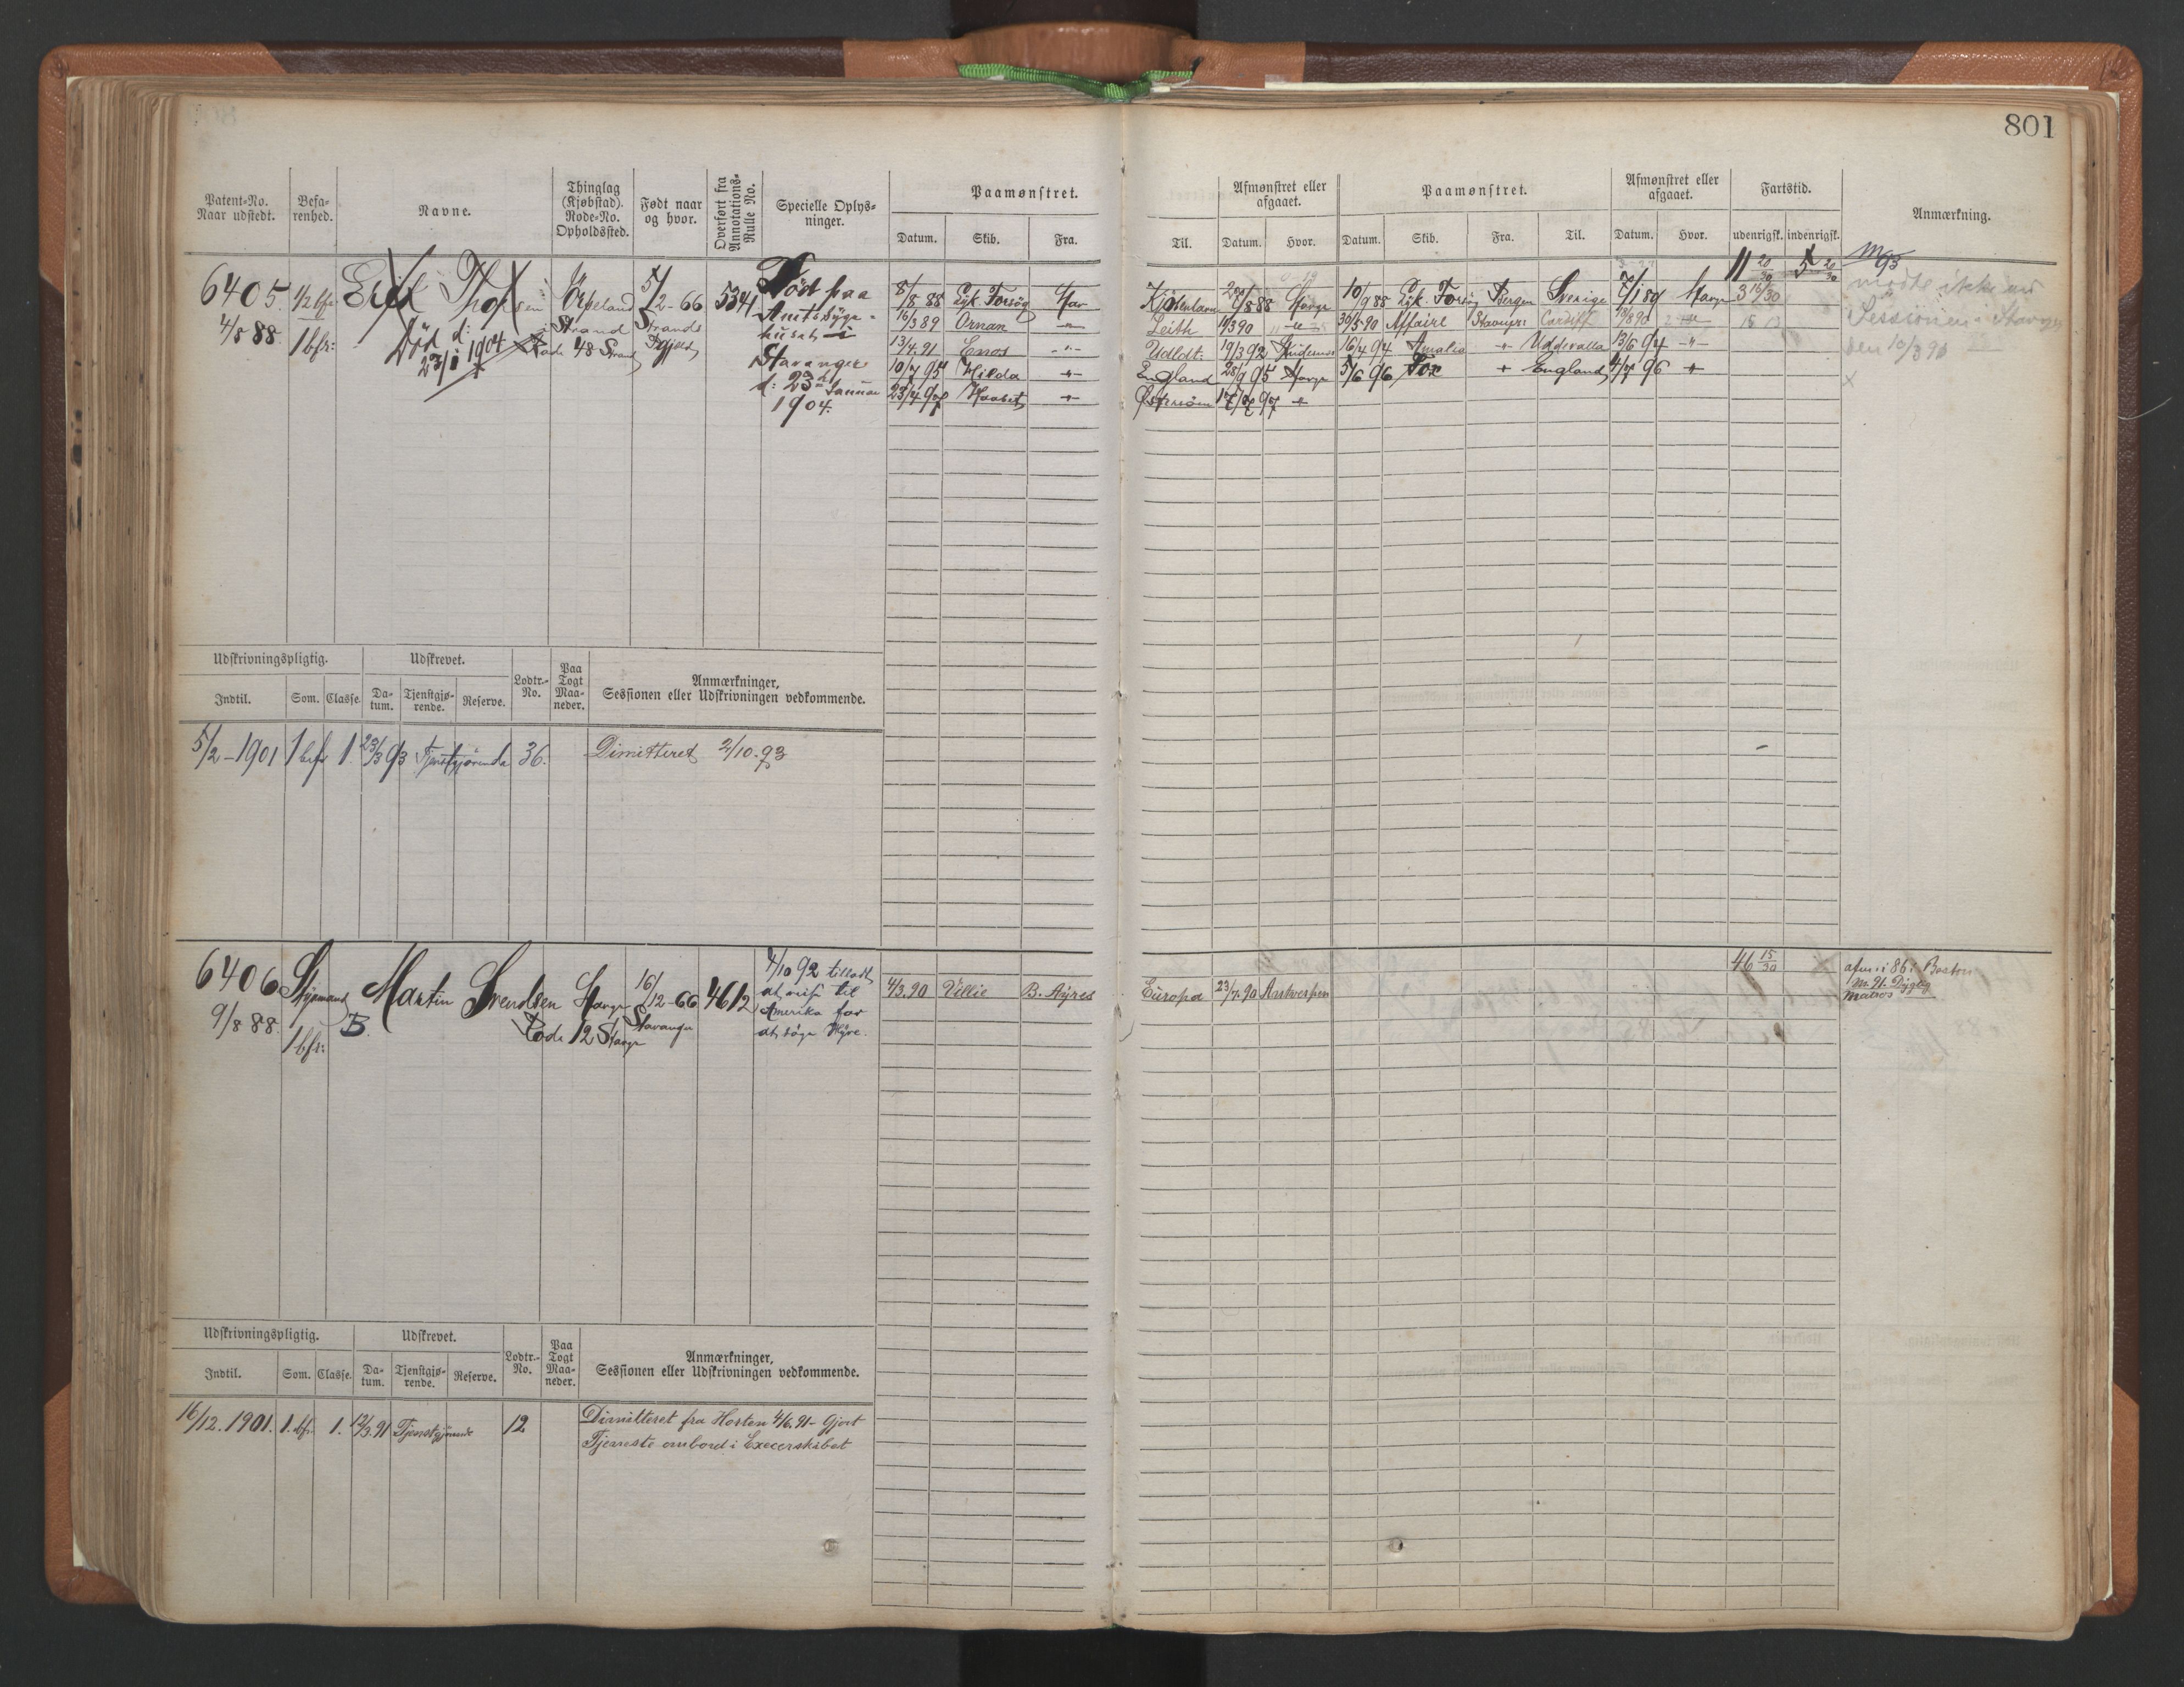 801
Patent-No. Naar udstedt. Befarenhed. Navne. Thinglag (Kjøbstad). Rode-No. Opholdssted. Født naar og hvor. Overført fra Annotations-Rulle No. Specielle Oplysninger. Paamønstret. Afmønstret eller afgaaet. Paamønstret. Afmønstret eller afgaaet. Fartstid. Anmærkning.
Datum. Skib. Fra. Til. Datum. Hvor. Datum. Skib. Fra. Til. Datum. Hvor. udenrigsk. indenrigsk.
6405 1/2 bfr 5/2-66 5341 Död paa
4/8 88 1 bfr: Strand Strands Amtssyge-
Död d: 23/1 1904 Rode 48 Strand Pgjeld husat i
Stavanger
d: 23de Januar
1904.
8/8 88 Forsög Stav Kjöbenhavn 88 Stavgr 10/9 88 Forsög Bergen Sverige 7/1 89 Stavgr 3 16/30
16/3 89 Ornan -"- Leith 4/3 90 -"- 30/5 90 Affaire Stavngr: Cardiff 13/8 90
13/4.91 Enos -"- Udldt. 19/3 92 16/4 94 Amalia -"- Uddevalla 13/6 94 -"-
10/7 95 Hilda -"- England 28/9 95 Stavgr 5/6 96 Fox + England 96 +
23/4 97 Haabet -"- 97 -"-
11 20/30 5 20/30
M 93
mødte ikke ved
Sessionen i Stavgr
den 10/3 90
x
Udskrivningspligtig. Udskrevet. Lodtr.-No. Paa Togt Maaneder. Anmærkninger, Sessionen eller Udskrivningen vedkommende.
Indtil. Som. Classe. Datum. Tjenstgjørende. Reserve.
5/2-1901 1 bfr 1. 23/3 93 Tjenstgjörende 36. Dimitteret 2/10.93
6406 Styrmand Martin Svendsen Stavgr 16/12 66 4612 4/10 92 tilladt
9/8 88. 1 bfr: B. Rode 12 Stavgr Stavanger at reise til
Amerika for
at söge Hyre.
4/3.90 Villie B. Ayres Europa 23/7.90 Antwerpen 46 15/30 afm: i 86 i Boston
M. 91. Dygtig
Matros
Udskrivningspligtig. Udskrevet. Lodtr.-No. Paa Togt Maaneder. Anmærkninger, Sessionen eller Udskrivningen vedkommende.
Indtil. Som. Classe. Datum. Tjenstgjørende. Reserve.
16/12.1901. 1. bfr. 1. 12/3.91 Tjenstgjörende 12 Dimitteret fra Horten 4/6.91 - Gjort
Tjeneste ombord i Exercerskibet